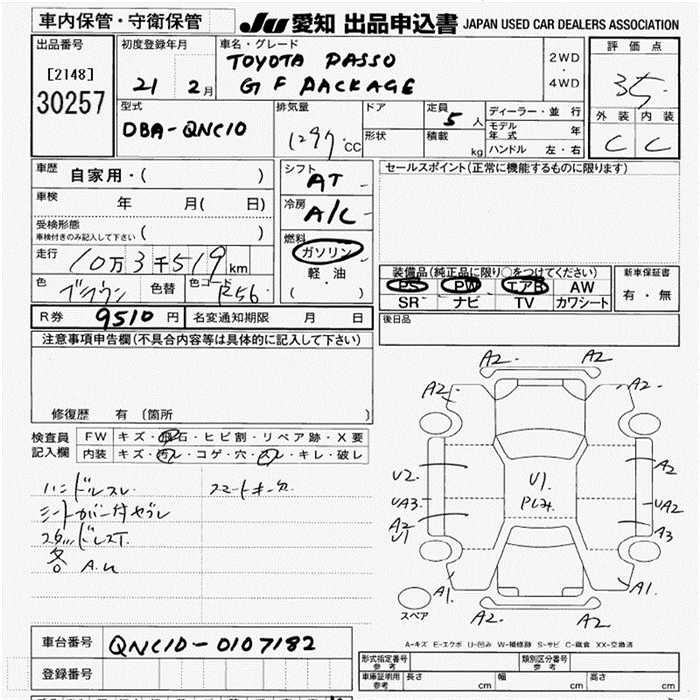 車内保管・守衛保管
JU 愛知 出品申込書 JAPAN USED CAR DEALERS ASSOCIATION
出品番号
[2148]
30257
初度登録年月
21 2月
車名・グレード
TOYOTA PASSO
G F PACKAGE
2WD
・
4WD
評価点
3.5
外装 内装
C C
型式
DBA-QNC10
排気量
1297 CC
ドア
形状
定員
5 人
積載
kg
ディーラー・並行
モデル年式 年
ハンドル 左・右
車歴
自家用・( )
車検 年 月( 日)
受検形態
車検付きのみ記入して下さい ( )
走行
10万3千519km
色 ブラウン 色替 色コード R56
シフト
AT
冷房
A/C
燃料
ガソリン
軽油
( )
セールスポイント(正常に機能するものに限ります)
装備品(純正品に限り○をつけてください)
PS PW エアB AW
SR ナビ TV カワシート
新車保証書
有・無
R券 9510円 名変通知期限 月 日
後日品
注意事項申告欄(不具合内容等は具体的に記入して下さい)
修復歴 有 〔箇所 〕
検査員
記入欄
FW キズ・飛石・ヒビ割・リペア跡・X要
内装 キズ・汚レ・コゲ・穴・スレ・キレ・破レ
ハンドルスレ
スマートキー
各 A.U
A2 A2
A2 A2
U2 A2
UA3 UA2
A2 A3
U1
U1
A1 A1
A2 A2
スペア
A-キズ E-エクボ U-凹み W-補修跡 S-サビ C-腐食 XX-交換済
車台番号 QNC10-0107182
登録番号
形式指定番号
参考
類別区分番号
参考
車庫証明用
参考
長さ cm 幅 cm 高さ cm